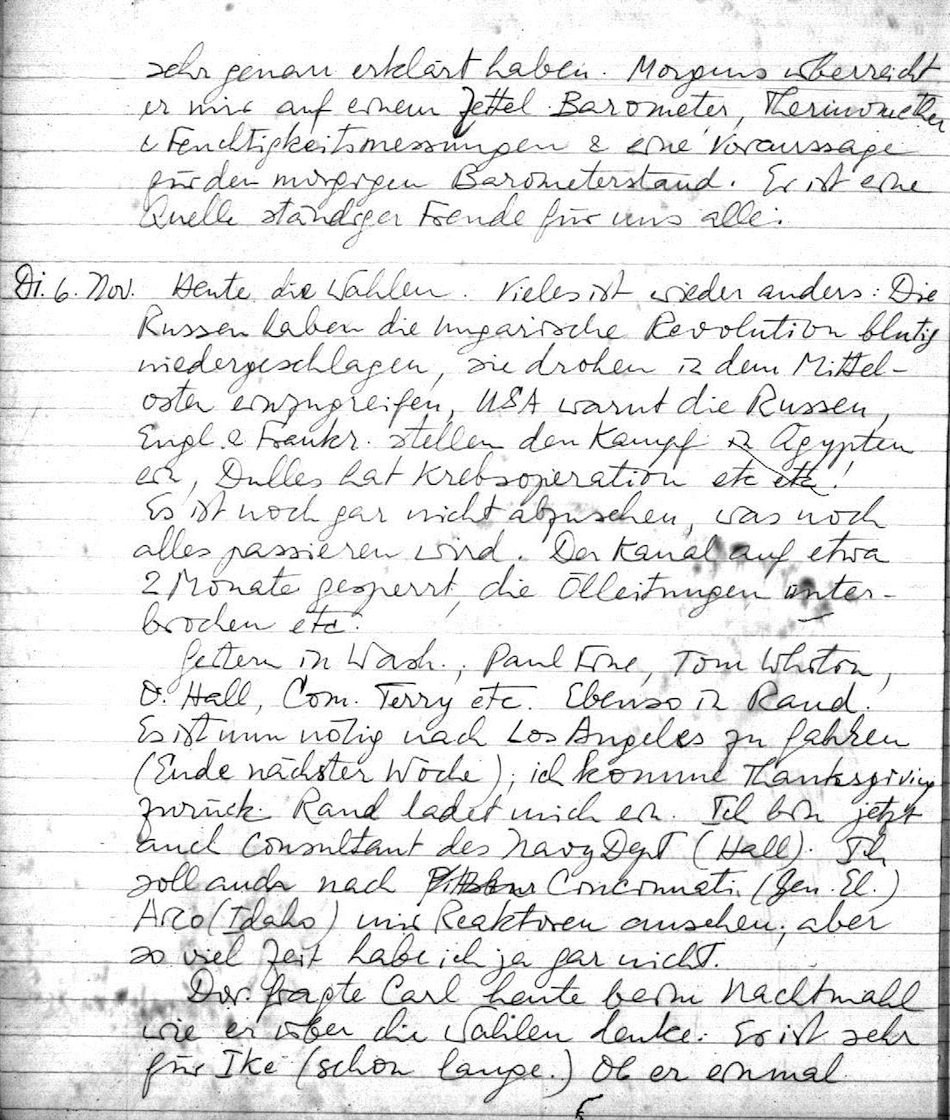 sehr genau erklärt haben. Morgens überreicht
er mir auf einem Zettel Barometer, Thermometer
& Feuchtigkeitsmessungen & eine Voraussage
für den morgigen Barometerstand. Er ist eine
Quelle ständiger Freude für uns alle.
Di. 6. Nov. Heute die Wahlen. Vieles ist wieder anders: Die
Russen haben die Ungarische Revolution blutig
niedergeschlagen, sie drohen in dem Mittel-
osten einzugreifen, USA warnt die Russen,
Engl. & Frankr. stellen den Kampf in Ägypten
ein, Dulles hat Krebsoperation etc etc!
Es ist noch gar nicht abzusehen, was noch
alles passieren wird. Der Kanal auf etwa
2 Monate gesperrt, die Ölleitungen unter-
brochen etc.
Gestern in Wash., Paul Fine, Tom
O. Hall, Com. Terry etc. Ebenso in Rand.
Es ist nun nötig nach Los Angeles zu fahren
(Ende nächster Woche); ich komme Thanksgiving
zurück. Rand ladet mich ein. Ich bin jetzt
auch Consultant des Navy Dept (Hall). Ich
soll auch nach Cincinnati (Gen. El.)
Arco (Idaho) mir Reaktoren ansehen, aber
so viel Zeit habe ich ja gar nicht.
Dor. fragte Carl heute beim Nachtmahl
wie er über die Wahlen denke. Er ist sehr
für Ike (schon lange.) Ob er einmal